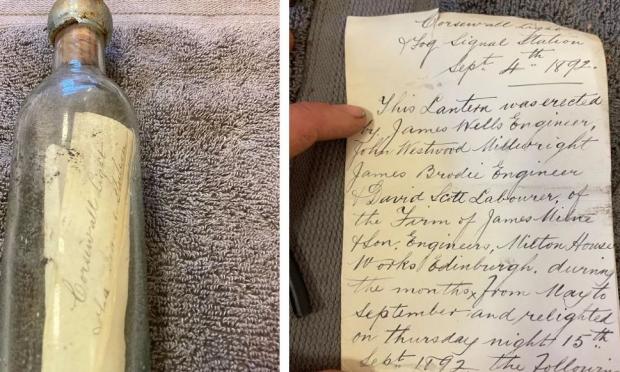 Corsewall Light
& Fog Signal Station
Corsewall Light
& Fog Signal Station
Sept. 4th 1892.
This Lantern was erected
by James Wells Engineer,
John Westwood Millwright
James Brodie Engineer
& David Scott Labourer, of
the Firm of James Milne
& Son, Engineers, Milton House
Works, Edinburgh, during
the months, from May to
September, and relighted
on Thursday night 15th
Sept 1892 the following